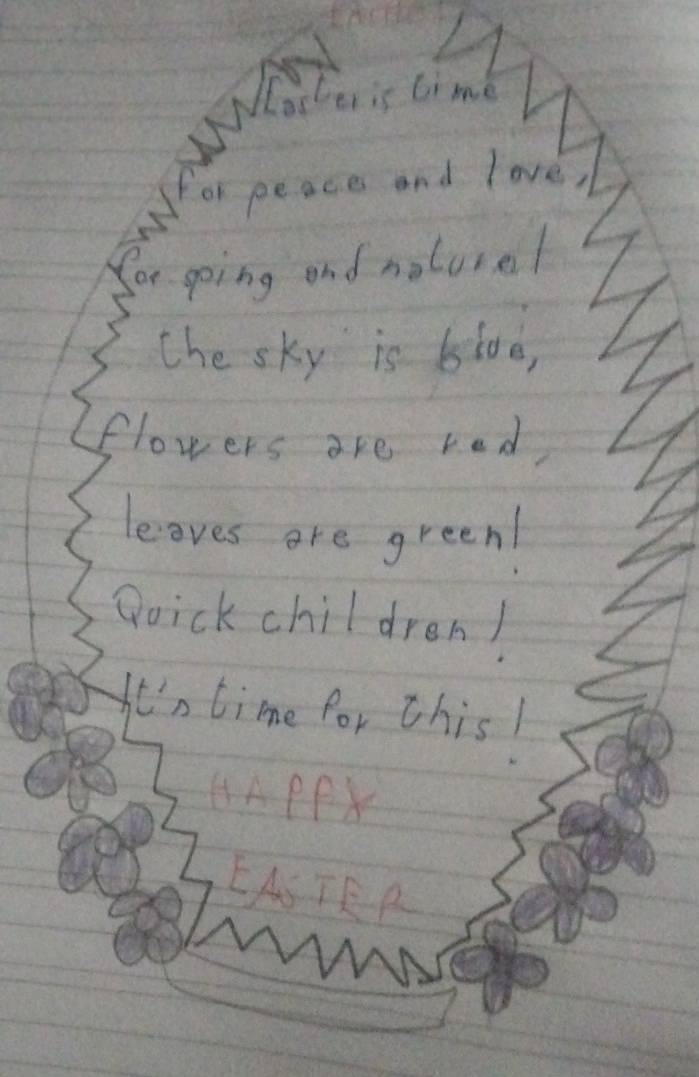 Easter is time
for peace and love,
for sping and nature!
the sky is blue,
flowers are red,
leaves are green!
Quick children!
It's time for this!
HAPPY
EASTER